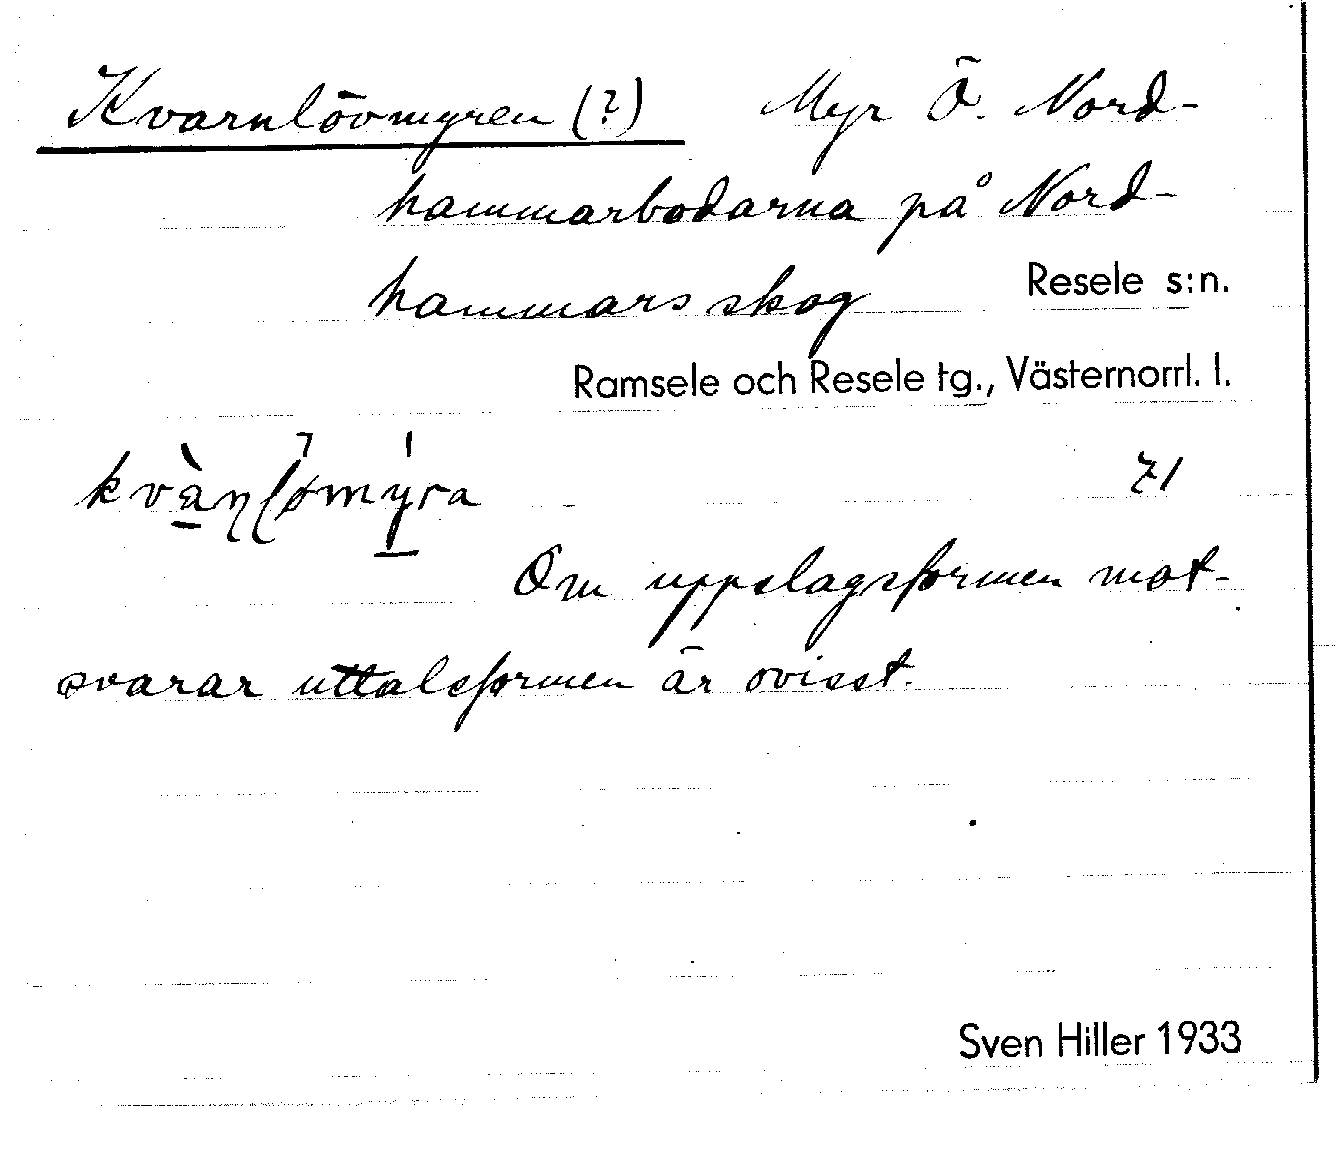 Kvarnlövmyren (?) Myr Ö. Nord-
hammarbodarna på Nord-
hammars skog Resele s:n.
Ramsele och Resele tg., Västernorrl. l.
71
Om uppslagsformen mot-
svarar uttalsformen är ovisst.
Sven Hiller 1933